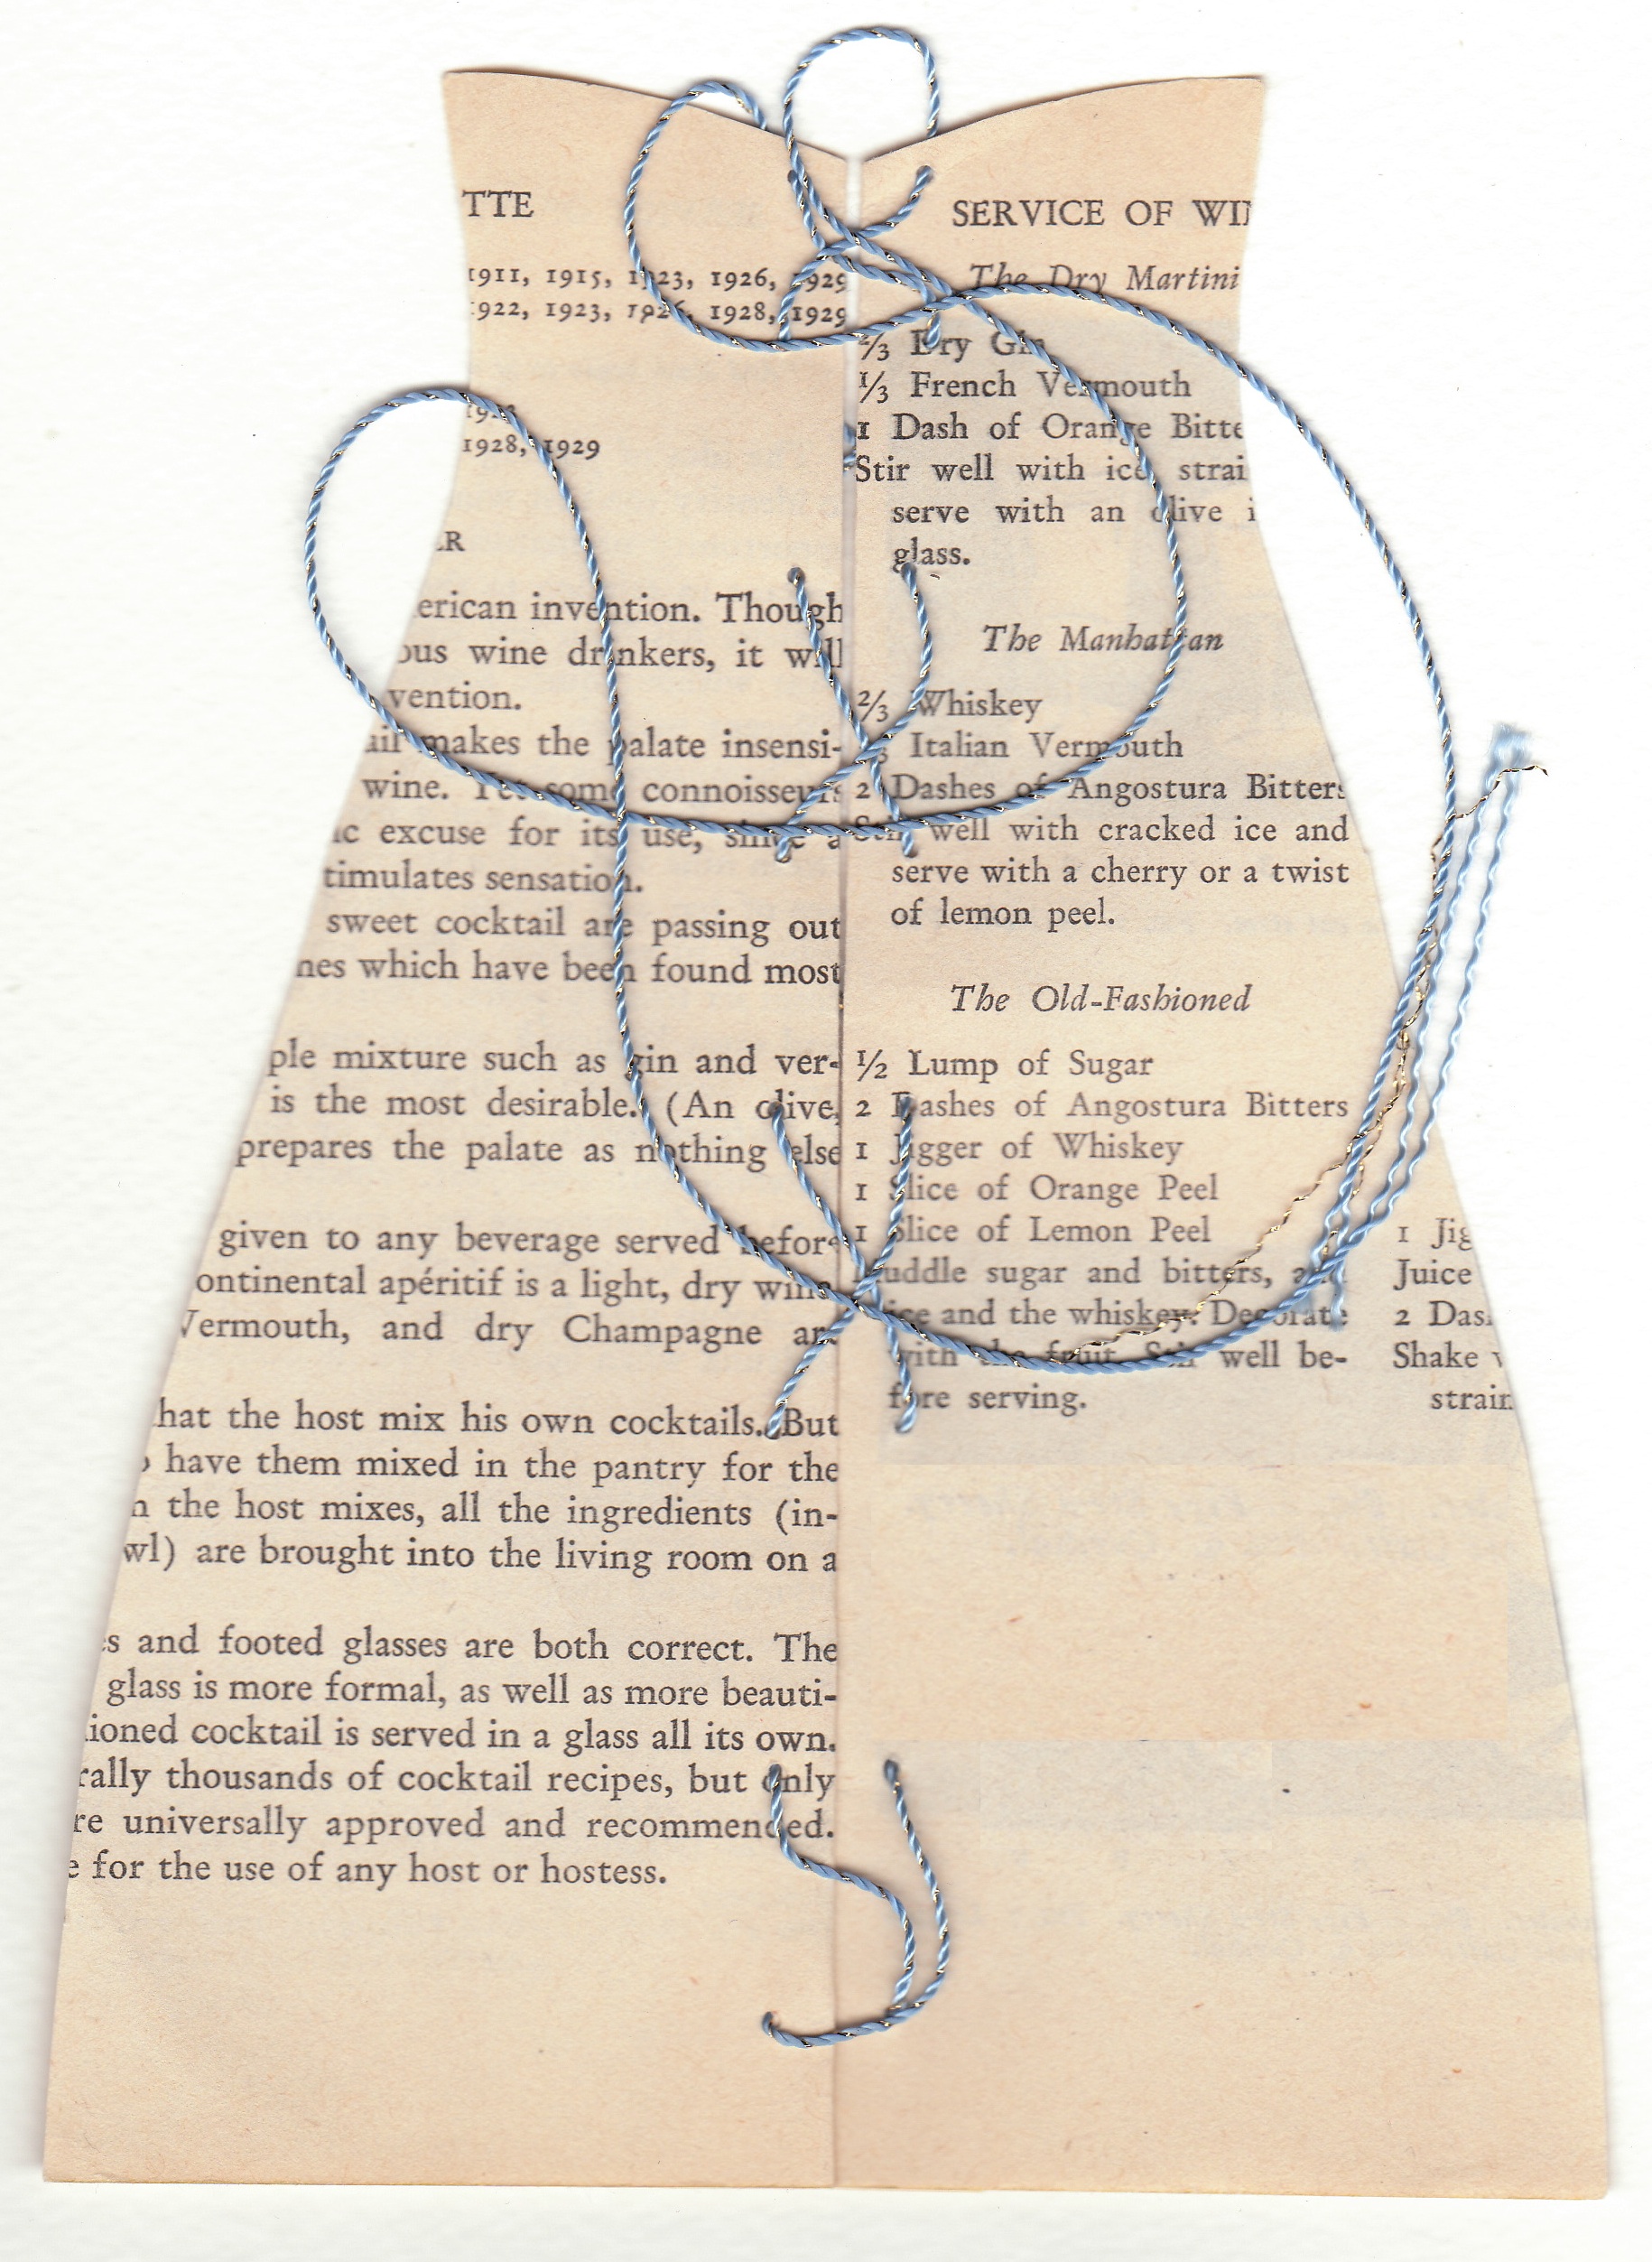 TTE
1911, 1915, 1923, 1926, 1929
1922, 1923, 1926, 1928, 1929
1928, 1929
ER
erican invention. Though
ous wine drinkers, it will
vention.
ail makes the palate insensi-
wine. Yet some connoisseurs
ic excuse for its use, since a
timulates sensation.
sweet cocktail are passing out
nes which have been found most
ple mixture such as gin and ver-
is the most desirable. (An olive,
prepares the palate as nothing else
given to any beverage served before
ontinental apéritif is a light, dry wine.
Vermouth, and dry Champagne are
hat the host mix his own cocktails. But
have them mixed in the pantry for the
n the host mixes, all the ingredients (in-
wl) are brought into the living room on a
s and footed glasses are both correct. The
glass is more formal, as well as more beauti-
ioned cocktail is served in a glass all its own.
rally thousands of cocktail recipes, but only
re universally approved and recommended.
e for the use of any host or hostess.
SERVICE OF WI
The Dry Martini
2/3 Dry Gin
1/3 French Vermouth
1 Dash of Orange Bitte
Stir well with ice, strai
serve with an olive i
glass.
The Manhattan
2/3 Whiskey
Italian Vermouth
2 Dashes of Angostura Bitters
Stir well with cracked ice and
serve with a cherry or a twist
of lemon peel.
The Old-Fashioned
1/2 Lump of Sugar
2 Dashes of Angostura Bitters
1 Jigger of Whiskey
1 Slice of Orange Peel
1 Slice of Lemon Peel
uddle sugar and bitters, add
ice and the whiskey. Decorate
with the fruit. Stir well be-
fore serving.
1 Jig
Juice
2 Das
Shake
strain